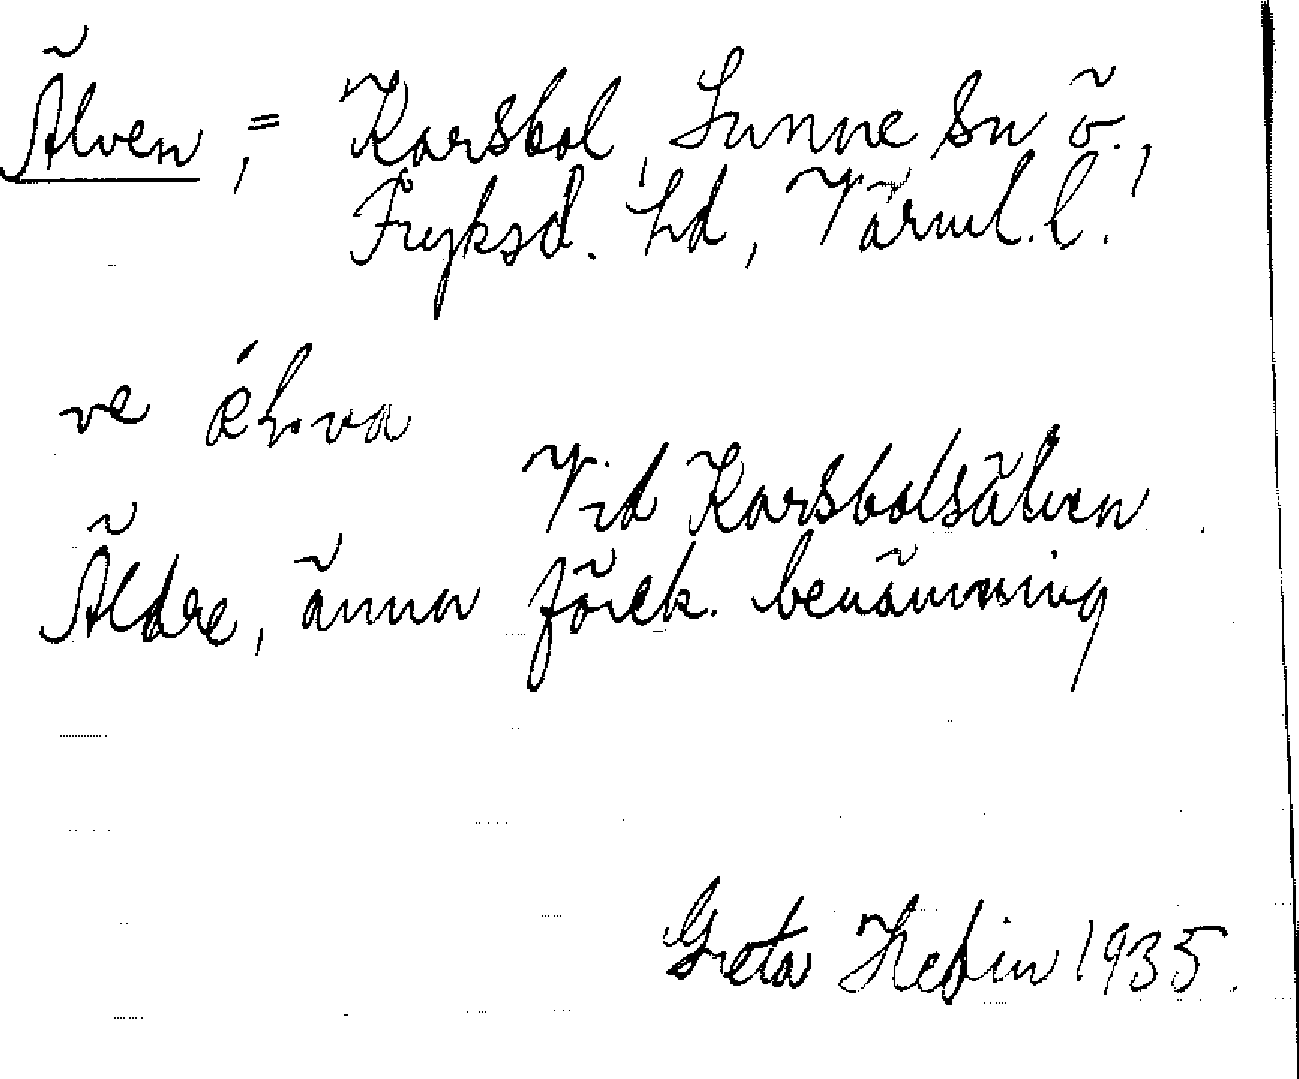 Älven, = Karsbol, Sunne sn ö.,
Fryksd. hd, Värml. l.
ve
Vid Karsbolsälven
Äldre, ännu förek. benämning
Greta Hedin 1935.